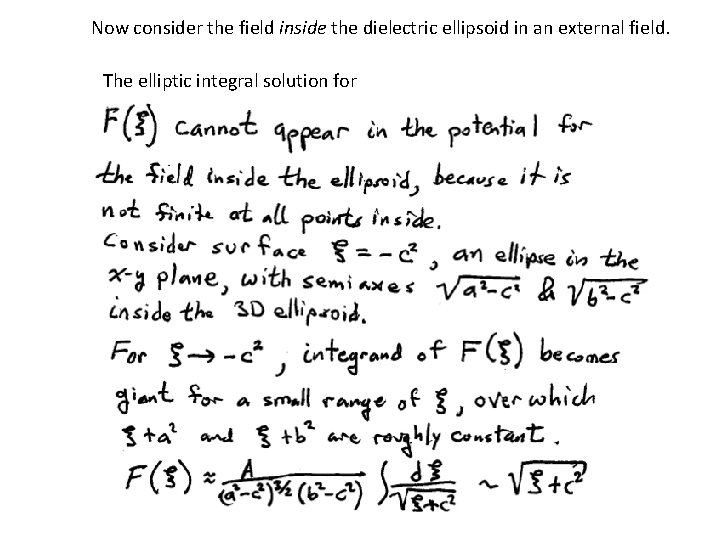 Now consider the field inside the dielectric ellipsoid in an external field.
The elliptic integral solution for
F(ξ) cannot appear in the potential for
the field inside the ellipsoid, because it is
not finite at all points inside.
Consider surface ξ = -c², an ellipse in the
x-y plane, with semiaxes √(a²-c²) & √(b²-c²)
inside the 3D ellipsoid.
For ξ → -c², integrand of F(ξ) becomes
giant for a small range of ξ, over which
ξ+a² and ξ+b² are roughly constant.
F(ξ) ≈ A/((a²-c²)^(3/2) (b²-c²)) ∫ dξ/√(ξ+c²) ~ √(ξ+c²)